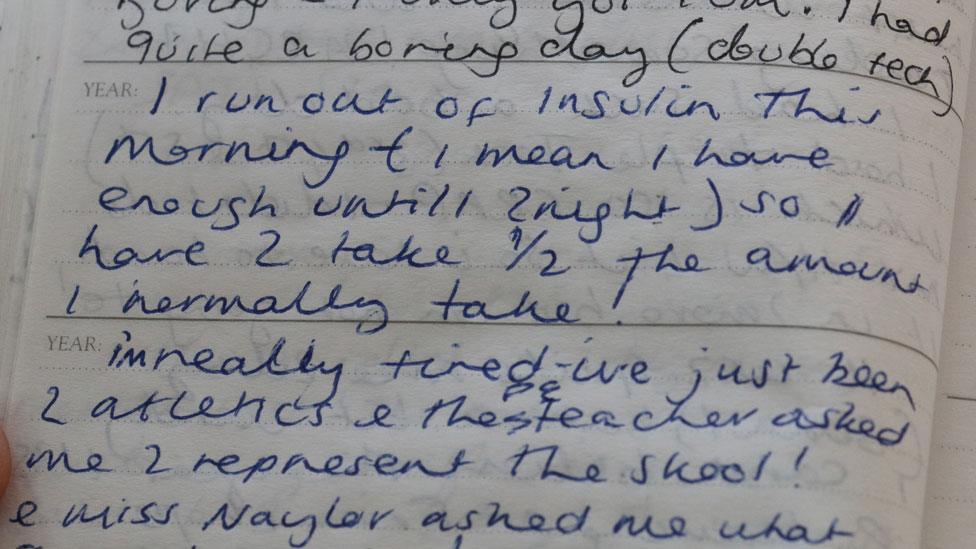 I had
quite a boring day (double tech)
YEAR: I run out of insulin this
morning ( i mean i have
enough untill 2night ) so ill
have 2 take 1/2 the amount
i normally take!
YEAR: im really tired - ive just been
2 atletics & the PE teacher asked
me 2 represent the skool!
& miss Naylor asked me what